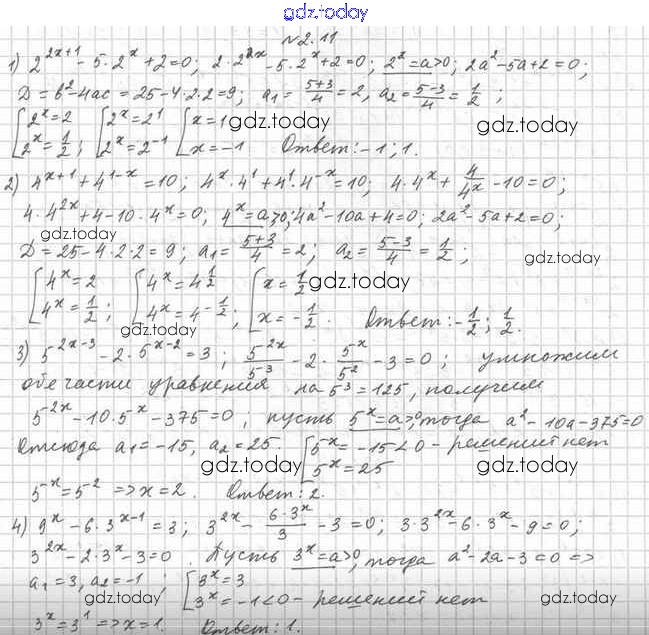 gdz.today
№2.11
1) 2^{2x+1} - 5·2^x + 2 = 0; 2·2^{2x} - 5·2^x + 2 = 0; 2^x = a > 0; 2a² - 5a + 2 = 0;
D = b² - 4ac = 25 - 4·2·2 = 9; a₁ = (5+3)/4 = 2, a₂ = (5-3)/4 = 1/2;
[2^x = 2 [2^x = 2^1 [x = 1 gdz.today gdz.today
[2^x = 1/2; [2^x = 2^{-1} [x = -1 Ответ: -1; 1.
2) 4^{x+1} + 4^{1-x} = 10; 4^x·4^1 + 4^1·4^{-x} = 10; 4·4^x + 4/4^x - 10 = 0;
4·4^{2x} + 4 - 10·4^x = 0; 4^x = a > 0; 4a² - 10a + 4 = 0; 2a² - 5a + 2 = 0;
gdz.today gdz.today
D = 25 - 4·2·2 = 9; a₁ = (5+3)/4 = 2; a₂ = (5-3)/4 = 1/2; gdz.today
[4^x = 2 [4^x = 4^{1/2} [x = 1/2 gdz.today
[4^x = 1/2; [4^x = 4^{-1/2}; [x = -1/2. Ответ: -1/2; 1/2.
gdz.today
3) 5^{2x-3} - 2·5^{x-2} = 3; 5^{2x}/5^3 - 2·5^x/5^2 - 3 = 0; умножим
обе части уравнения на 5³ = 125, получим
5^{2x} - 10·5^x - 375 = 0; пусть 5^x = a > 0, тогда a² - 10a - 375 = 0
Отсюда a₁ = -15, a₂ = 25 [5^x = -15 < 0 - решений нет
gdz.today [5^x = 25 gdz.today
5^x = 5^2 => x = 2. Ответ: 2.
4) 9^x - 6·3^{x-1} = 3; 3^{2x} - 6·3^x/3 - 3 = 0; 3·3^{2x} - 6·3^x - 9 = 0;
3^{2x} - 2·3^x - 3 = 0. Пусть 3^x = a > 0, тогда a² - 2a - 3 = 0 =>
gdz.today
a₁ = 3, a₂ = -1; [3^x = 3
gdz.today [3^x = -1 < 0 - решений нет gdz.today
3^x = 3^1 => x = 1. Ответ: 1.
gdz.today